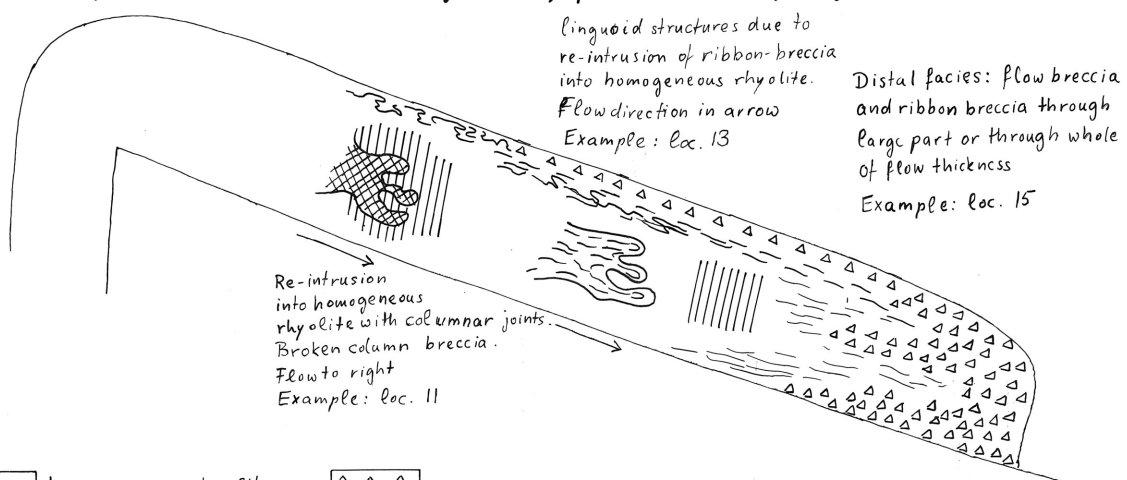 linguoid structures due to
re-intrusion of ribbon-breccia
into homogeneous rhyolite.
Flow direction in arrow
Example: loc. 13
Distal facies: flow breccia
and ribbon breccia through
large part or through whole
of flow thickness
Example: loc. 15
Re-intrusion
into homogeneous
rhyolite with columnar joints.
Broken column breccia.
Flow to right
Example: loc. 11